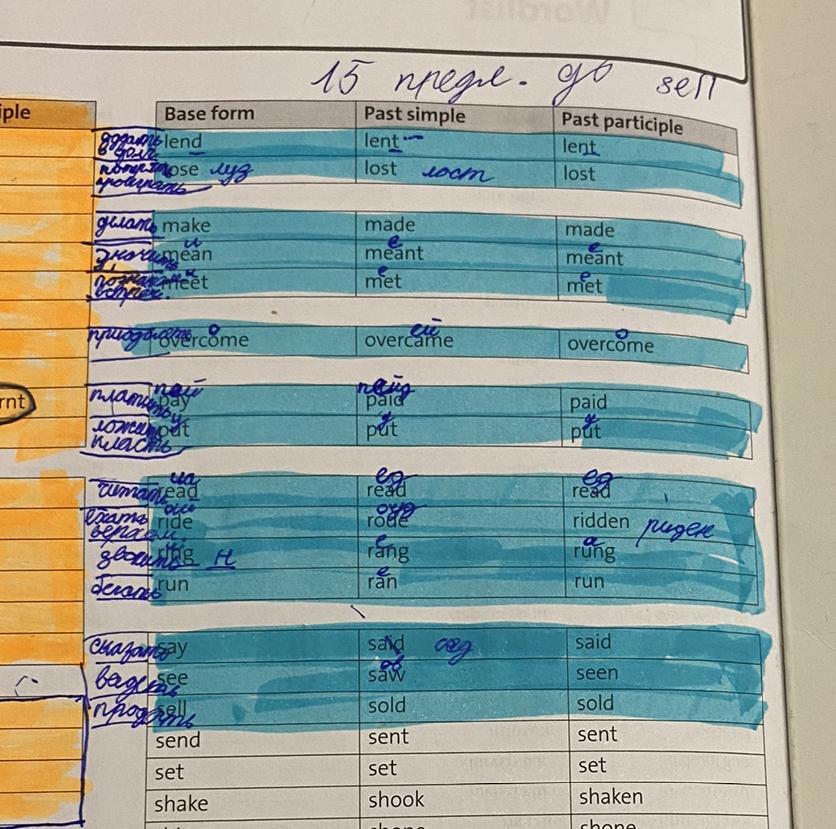 Wordlist
15 предл. до sell
iple Base form Past simple Past participle
lend lent lent
lose луз lost лост lost
проиграть
делать make made made
значить mean meant meant
и е е
meet met met
встреч.
overcome overcame overcome
о ей о
rnt платить pay пэй paid пэйд paid
put put put
класть
читать read read read
ехать ride rode ridden риден
верхом
звонить ring н rang rung
бегать run ran run
сказать say said сед said
видеть see saw seen
продать sell sold sold
send sent sent
set set set
shake shook shaken